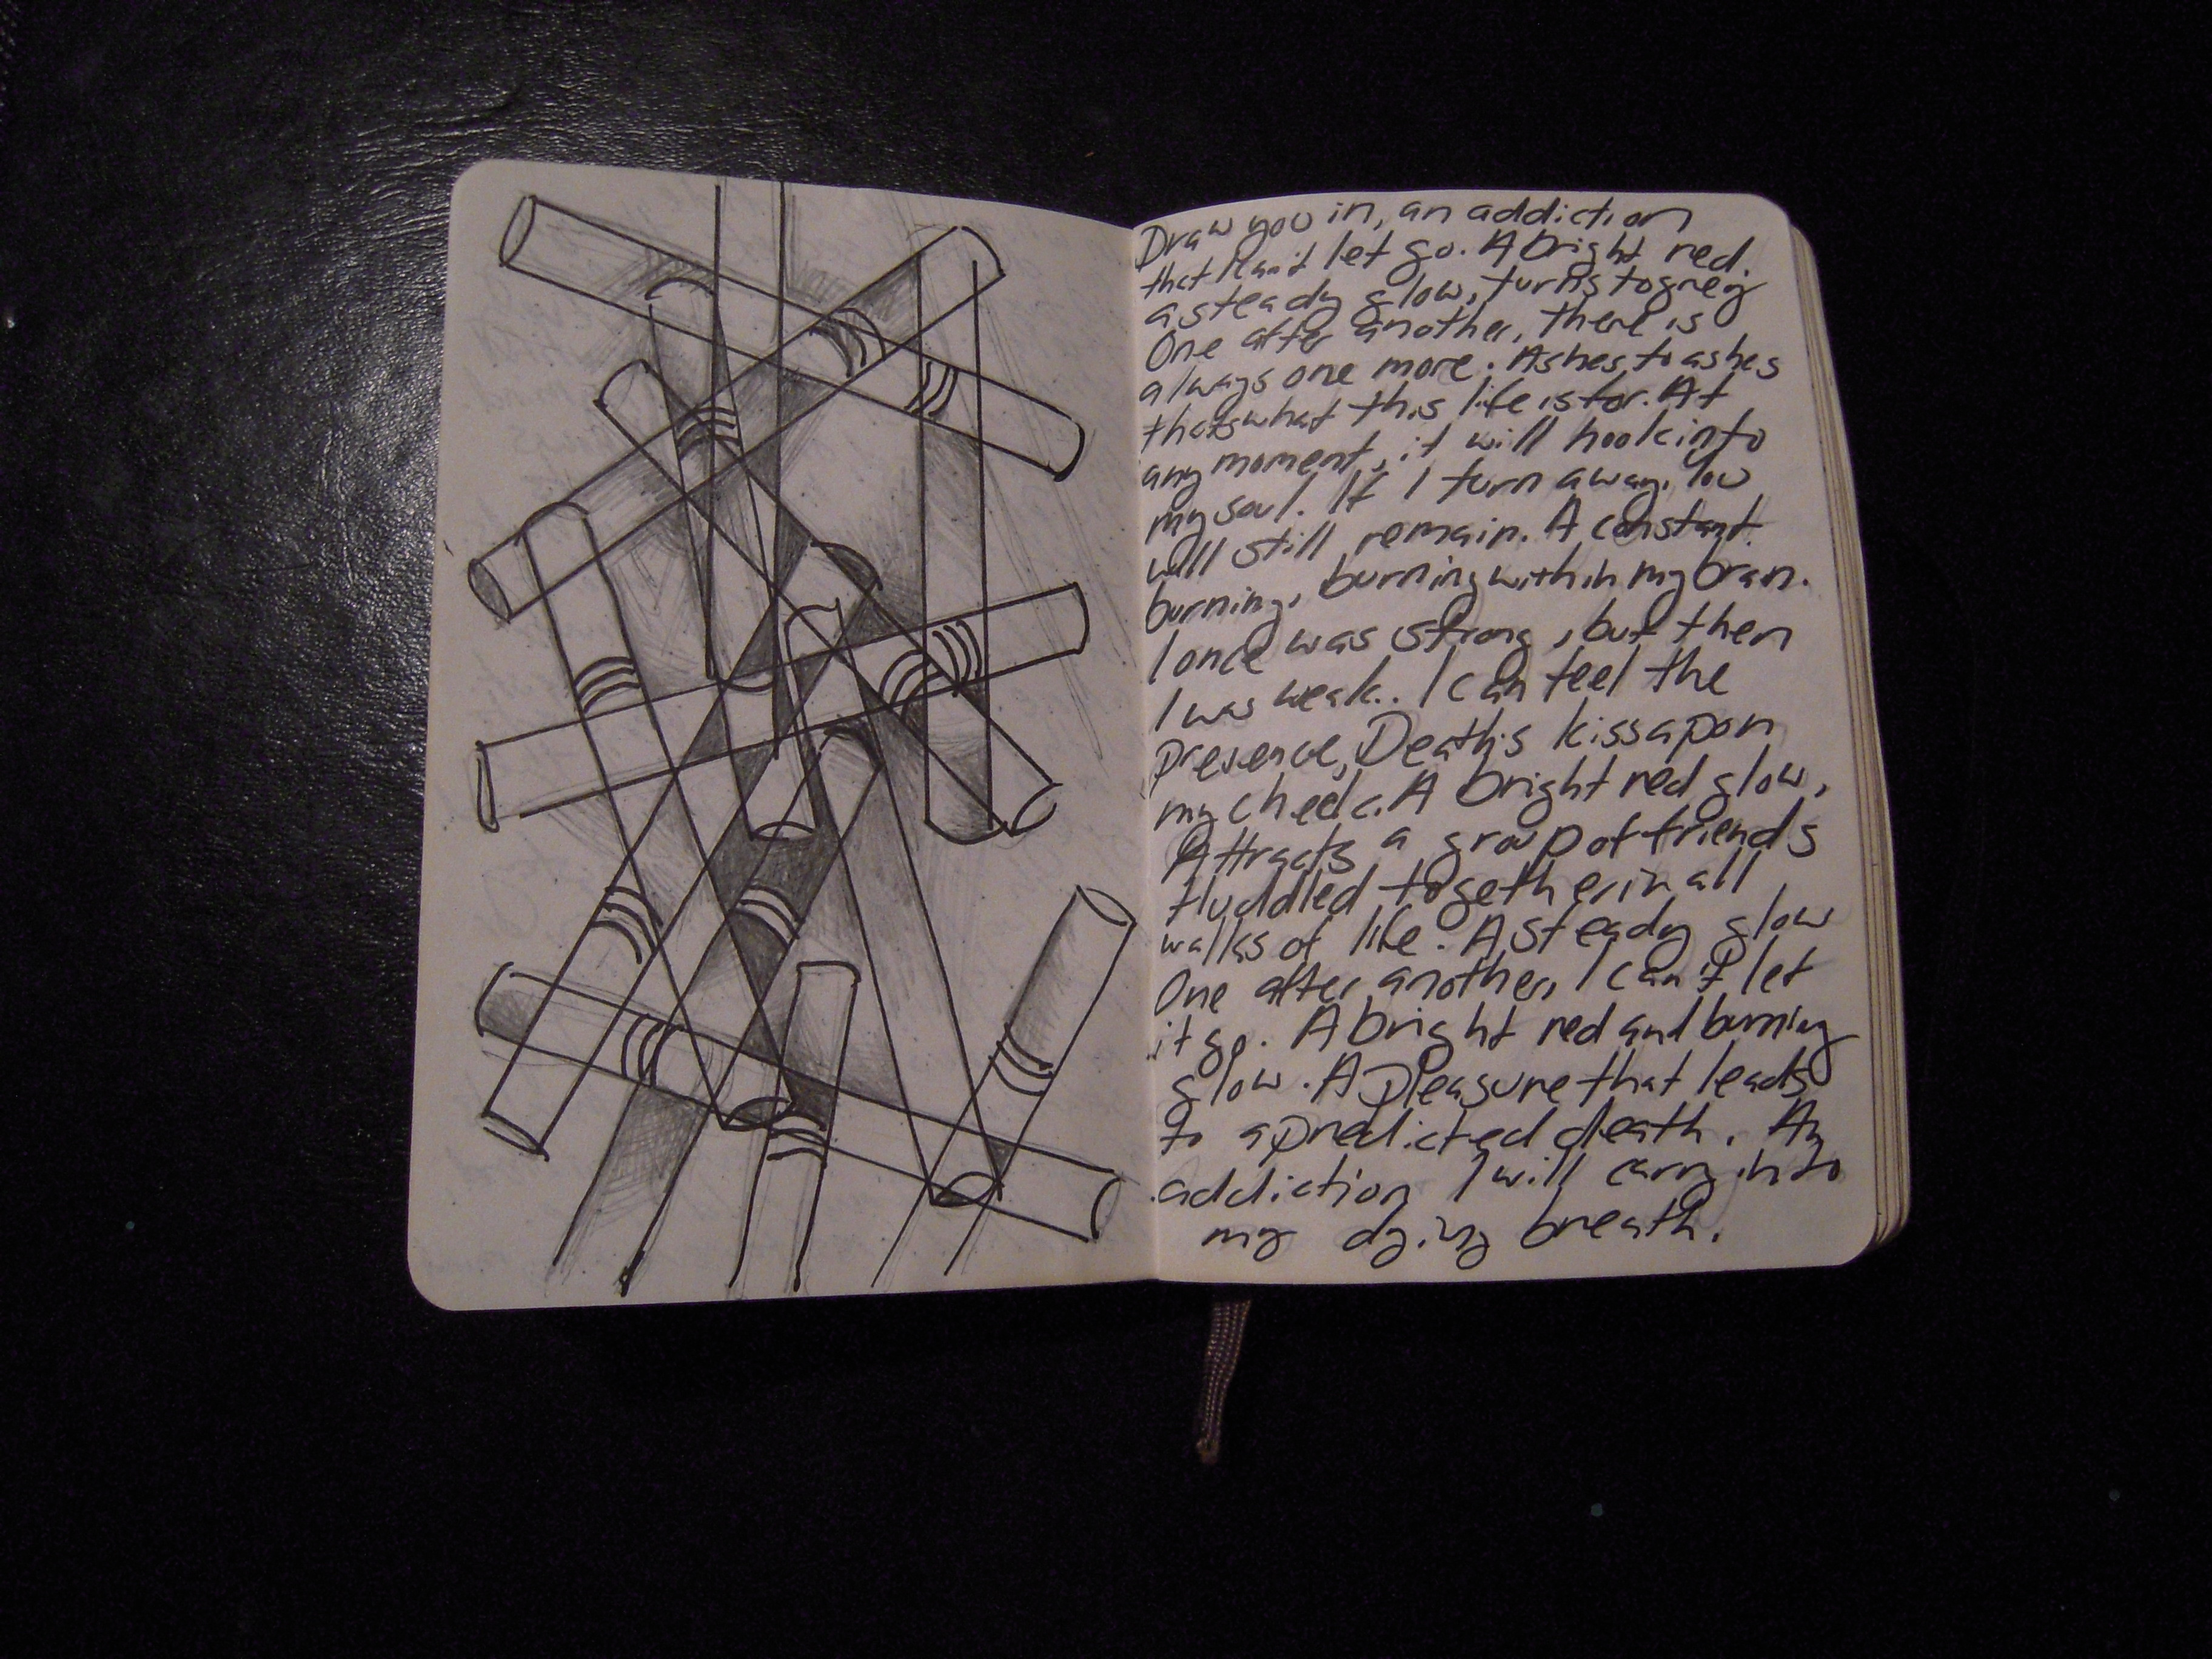 Draw you in, an addiction
that I can't let go. A bright red.
a steady glow, turns to grey
One after another, there is
always one more. Ashes to ashes
thats what this life is for. At
any moment, it will hook into
my soul. If I turn away, You
will still remain. A constant
burning, burning within my brain.
I once was strong, but then
I was weak.. I can feel the
presence, Death's kiss apon
my cheek. A bright red glow,
Attracts a group of friends
Huddled together in all
walks of life. A steady glow
One after another, I can't let
it go. A bright red and burning
glow. A pleasure that leads
to a predicted death. An
addiction I will carry into
my dying breath.